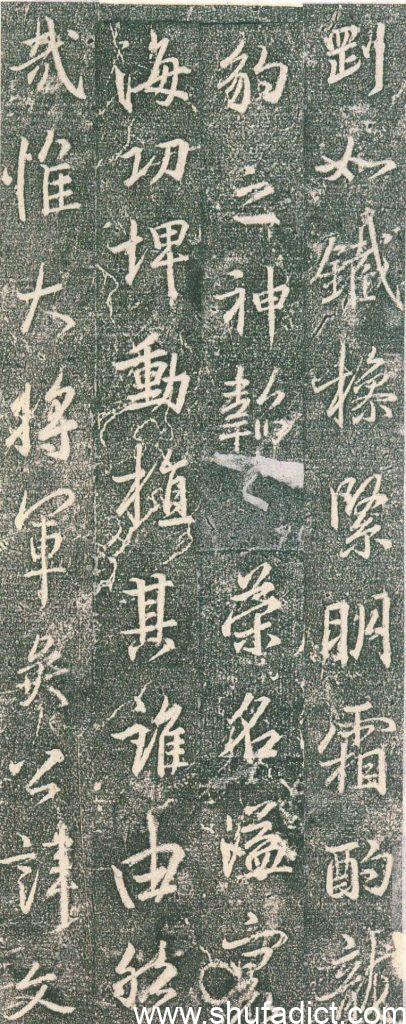 剛如鐵橾緊明霜酌龍
豹之神韜榮名溢寰
海功埤動植其誰由然
哉惟大將軍矣公諱文
www.shufadict.com